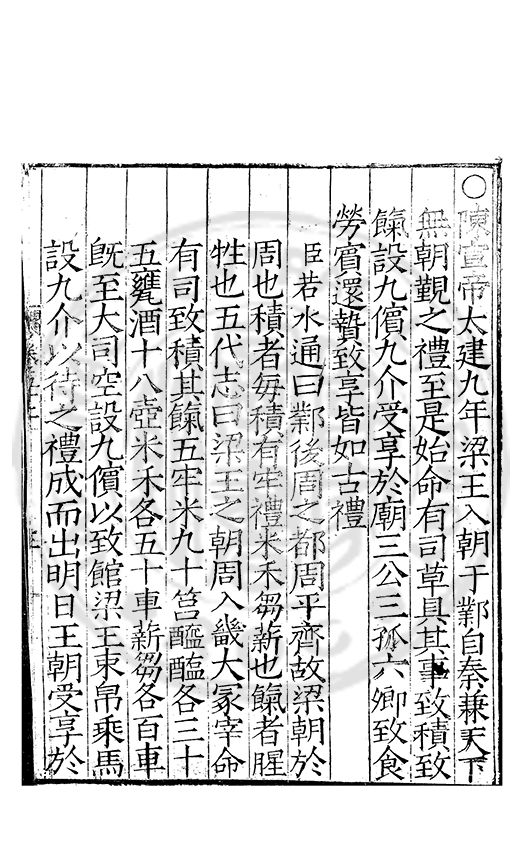 ○陳宣帝太建九年梁王入朝于鄴自秦兼天下
無朝覲之禮至是始命有司草具其事致積致
餼設九儐九介受享於廟三公三孤六卿致食
勞賓還贄致享皆如古禮
臣若水通曰鄴後周之都周平齊故梁朝於
周也積者每積有牢禮米禾芻薪也餼者腥
牲也五代志曰梁王之朝周入畿大冢宰命
有司致積其餼五牢米九十筥醯醢各三十
五甕酒十八壺米禾各五十車薪芻各百車
旣至大司空設九儐以致館梁王束帛乘馬
設九介以待之禮成而出明日王朝受享於